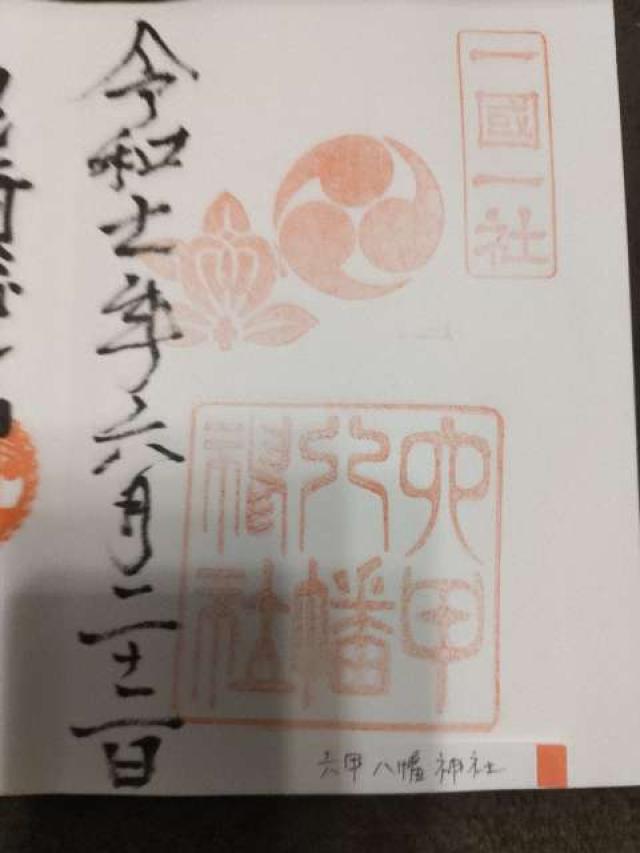 一國一社
六甲
八幡
神社
令和五年六月二十二日
六甲八幡神社